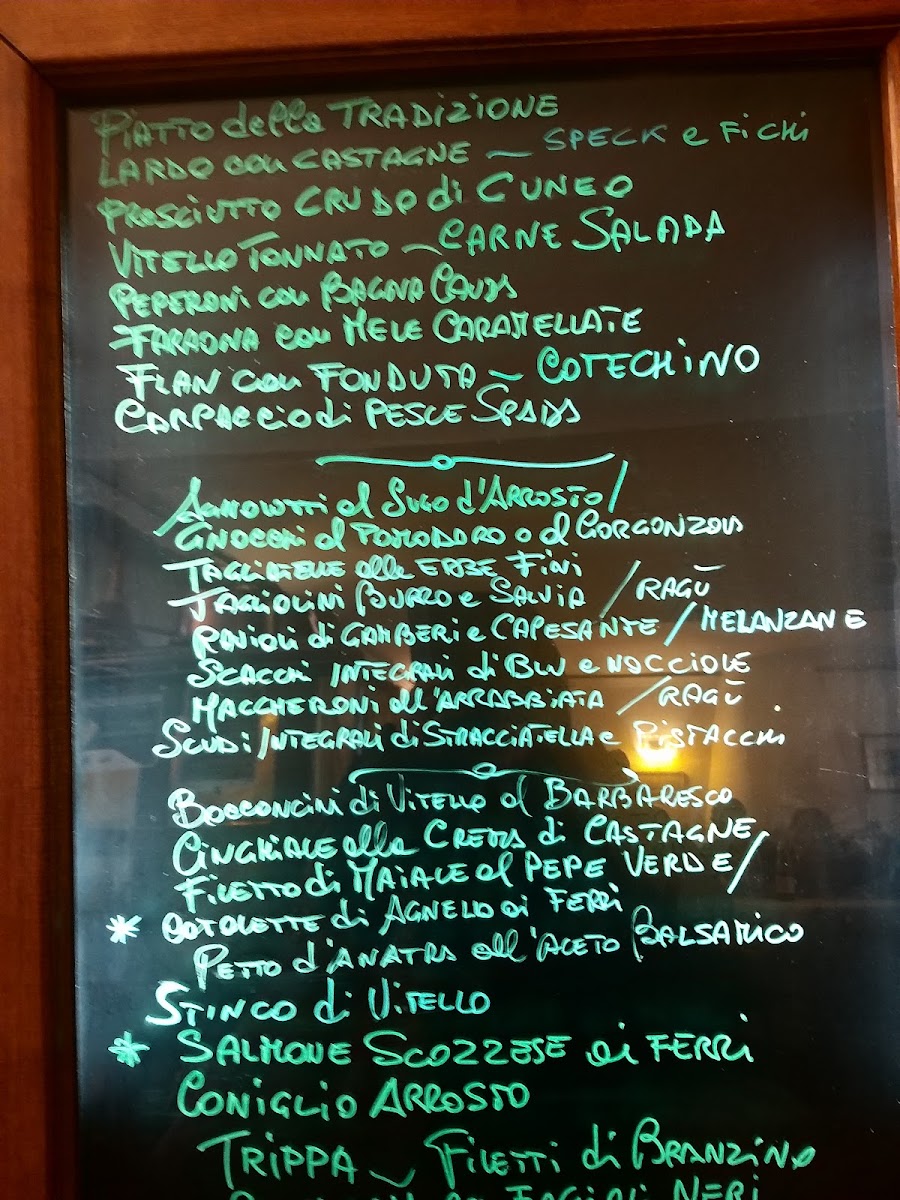 PIATTO della TRADIZIONE
LARDO con CASTAGNE ~ SPECK e FICHI
PROSCIUTTO CRUDO di CUNEO
VITELLO TONNATO ~ CARNE SALADA
PEPERONI con BAGNA CAUDA
FARAONA con MELE CARAMELLATE
FLAN con FONDUTA ~ COTECHINO
CARPACCIO di PESCE SPADA
AGNOLOTTI al SUGO d'ARROSTO /
GNOCCHI al POMODORO o al GORGONZOLA
TAGLIATELLE alle ERBE FINI
TAGLIOLINI BURRO e SALVIA / RAGÙ
RAVIOLI di GAMBERI e CAPESANTE / MELANZANE
SCACCHI INTEGRALI di BLU e NOCCIOLE
MACCHERONI all'ARRABBIATA / RAGÙ
SCUDI INTEGRALI di STRACCIATELLA e PISTACCHI
BOCCONCINI di VITELLO al BARBARESCO
CINGHIALE alla CREMA di CASTAGNE
FILETTO di MAIALE al PEPE VERDE /
* COTOLETTE di AGNELLO ai FERRI
PETTO d'ANATRA all'ACETO BALSAMICO
STINCO di VITELLO
* SALMONE SCOZZESE ai FERRI
CONIGLIO ARROSTO
TRIPPA ~ FILETTI di BRANZINO
FAGIOLI NERI